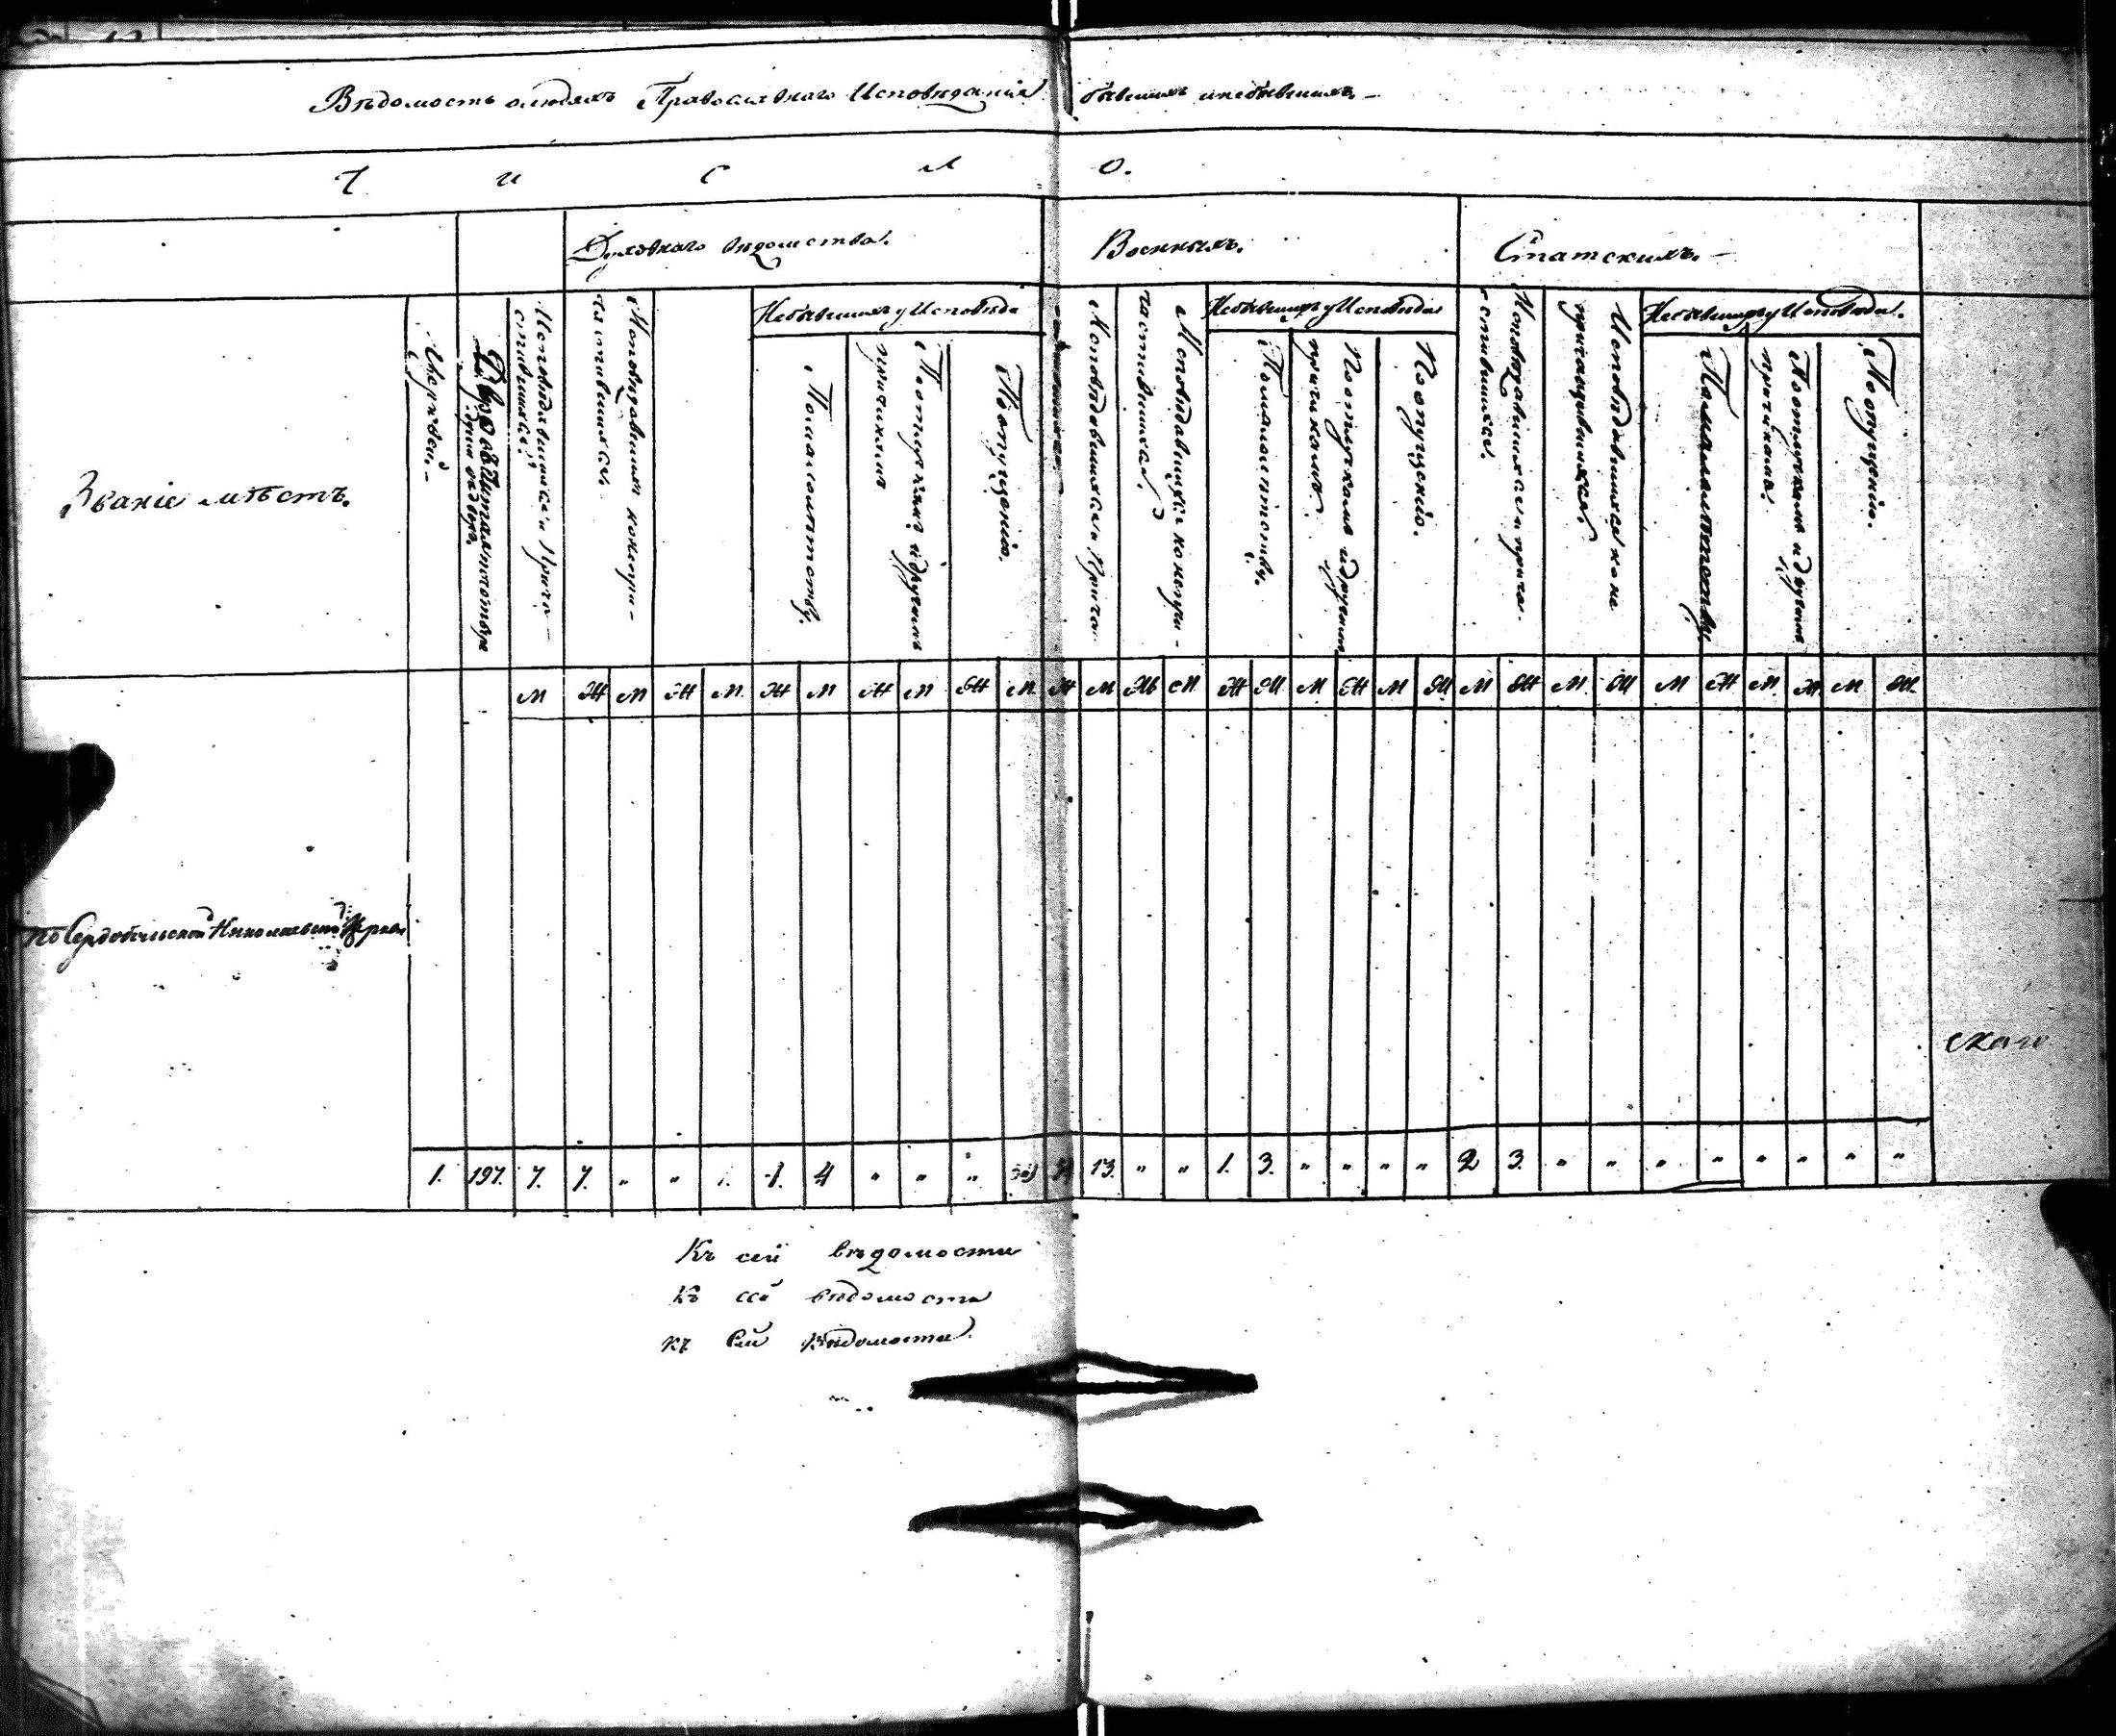 Вѣдомость о людяхъ Православнаго Исповѣданія бывшихъ и небывшихъ. —
Ч и с л о.
Духовнаго вѣдомства. Военныхъ. Статскихъ. —
Званіе мѣстъ.
Церквей. —
Исповѣдавшихся и Прича-
стившихся.
Исповѣдавшихся но непри-
частившихся.
Небывшихъ у Исповѣди
По малолѣтству.
По отлучкамъ и другимъ
причинамъ
По опущенію.
Исповѣдовшихся и Прича
Исповѣдавшихся но непри-
частившихся.
Небывшихъ у Исповѣди
По малолѣтству.
По отлучкамъ и другимъ
причинамъ.
По опущенію.
Исповѣдавшихся и прича-
стившихся.
Исповѣдавшихся но не
причащавшихся.
Небывшихъ у Исповѣди.
По малолѣтству
По отлучкамъ и другимъ
причинамъ.
По опущенію.
М Ж М Ж М. Ж М Ж М Ж М. Ж М Ж М Ж М М Ж М Ж М Ж М. Ж М Ж М Ж М Ж
по Сердобольской Николаевской Церкви
скаго
1. 197. 7. 7. „ „ 1. 4 „ „ „ 13. „ „ 1. 3. „ „ „ „ 2 3. „ „ „ „ „ „ „ „
Къ сей вѣдомости
Къ сей вѣдомости
къ сей вѣдомости